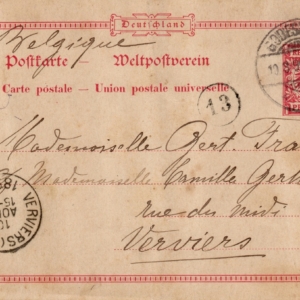 Deutschland
Belgique
Postkarte — Weltpostverein
Carte postale — Union postale universelle
13
Mademoiselle Bert. Fra
Mademoiselle Camille Gerh
rue du midi
Verviers
VERVIERS
10
AOU
15-